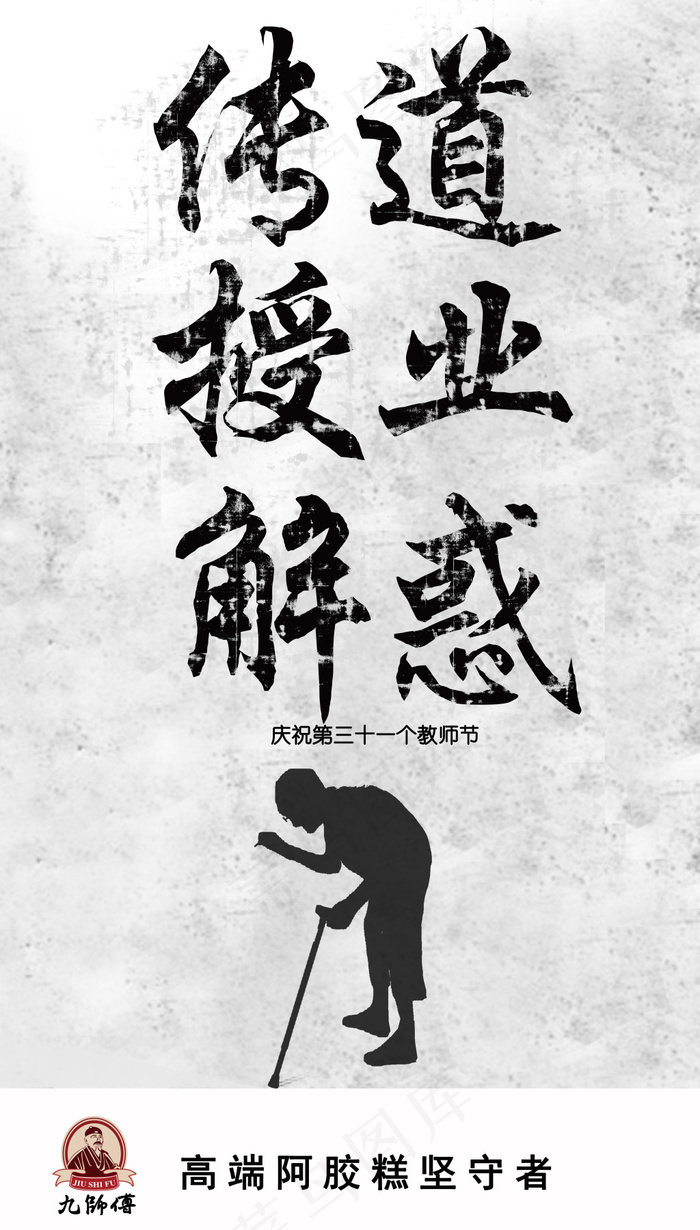 传道
授业
解惑
庆祝第三十一个教师节
JIU SHI FU
九師傅
高端阿胶糕坚守者